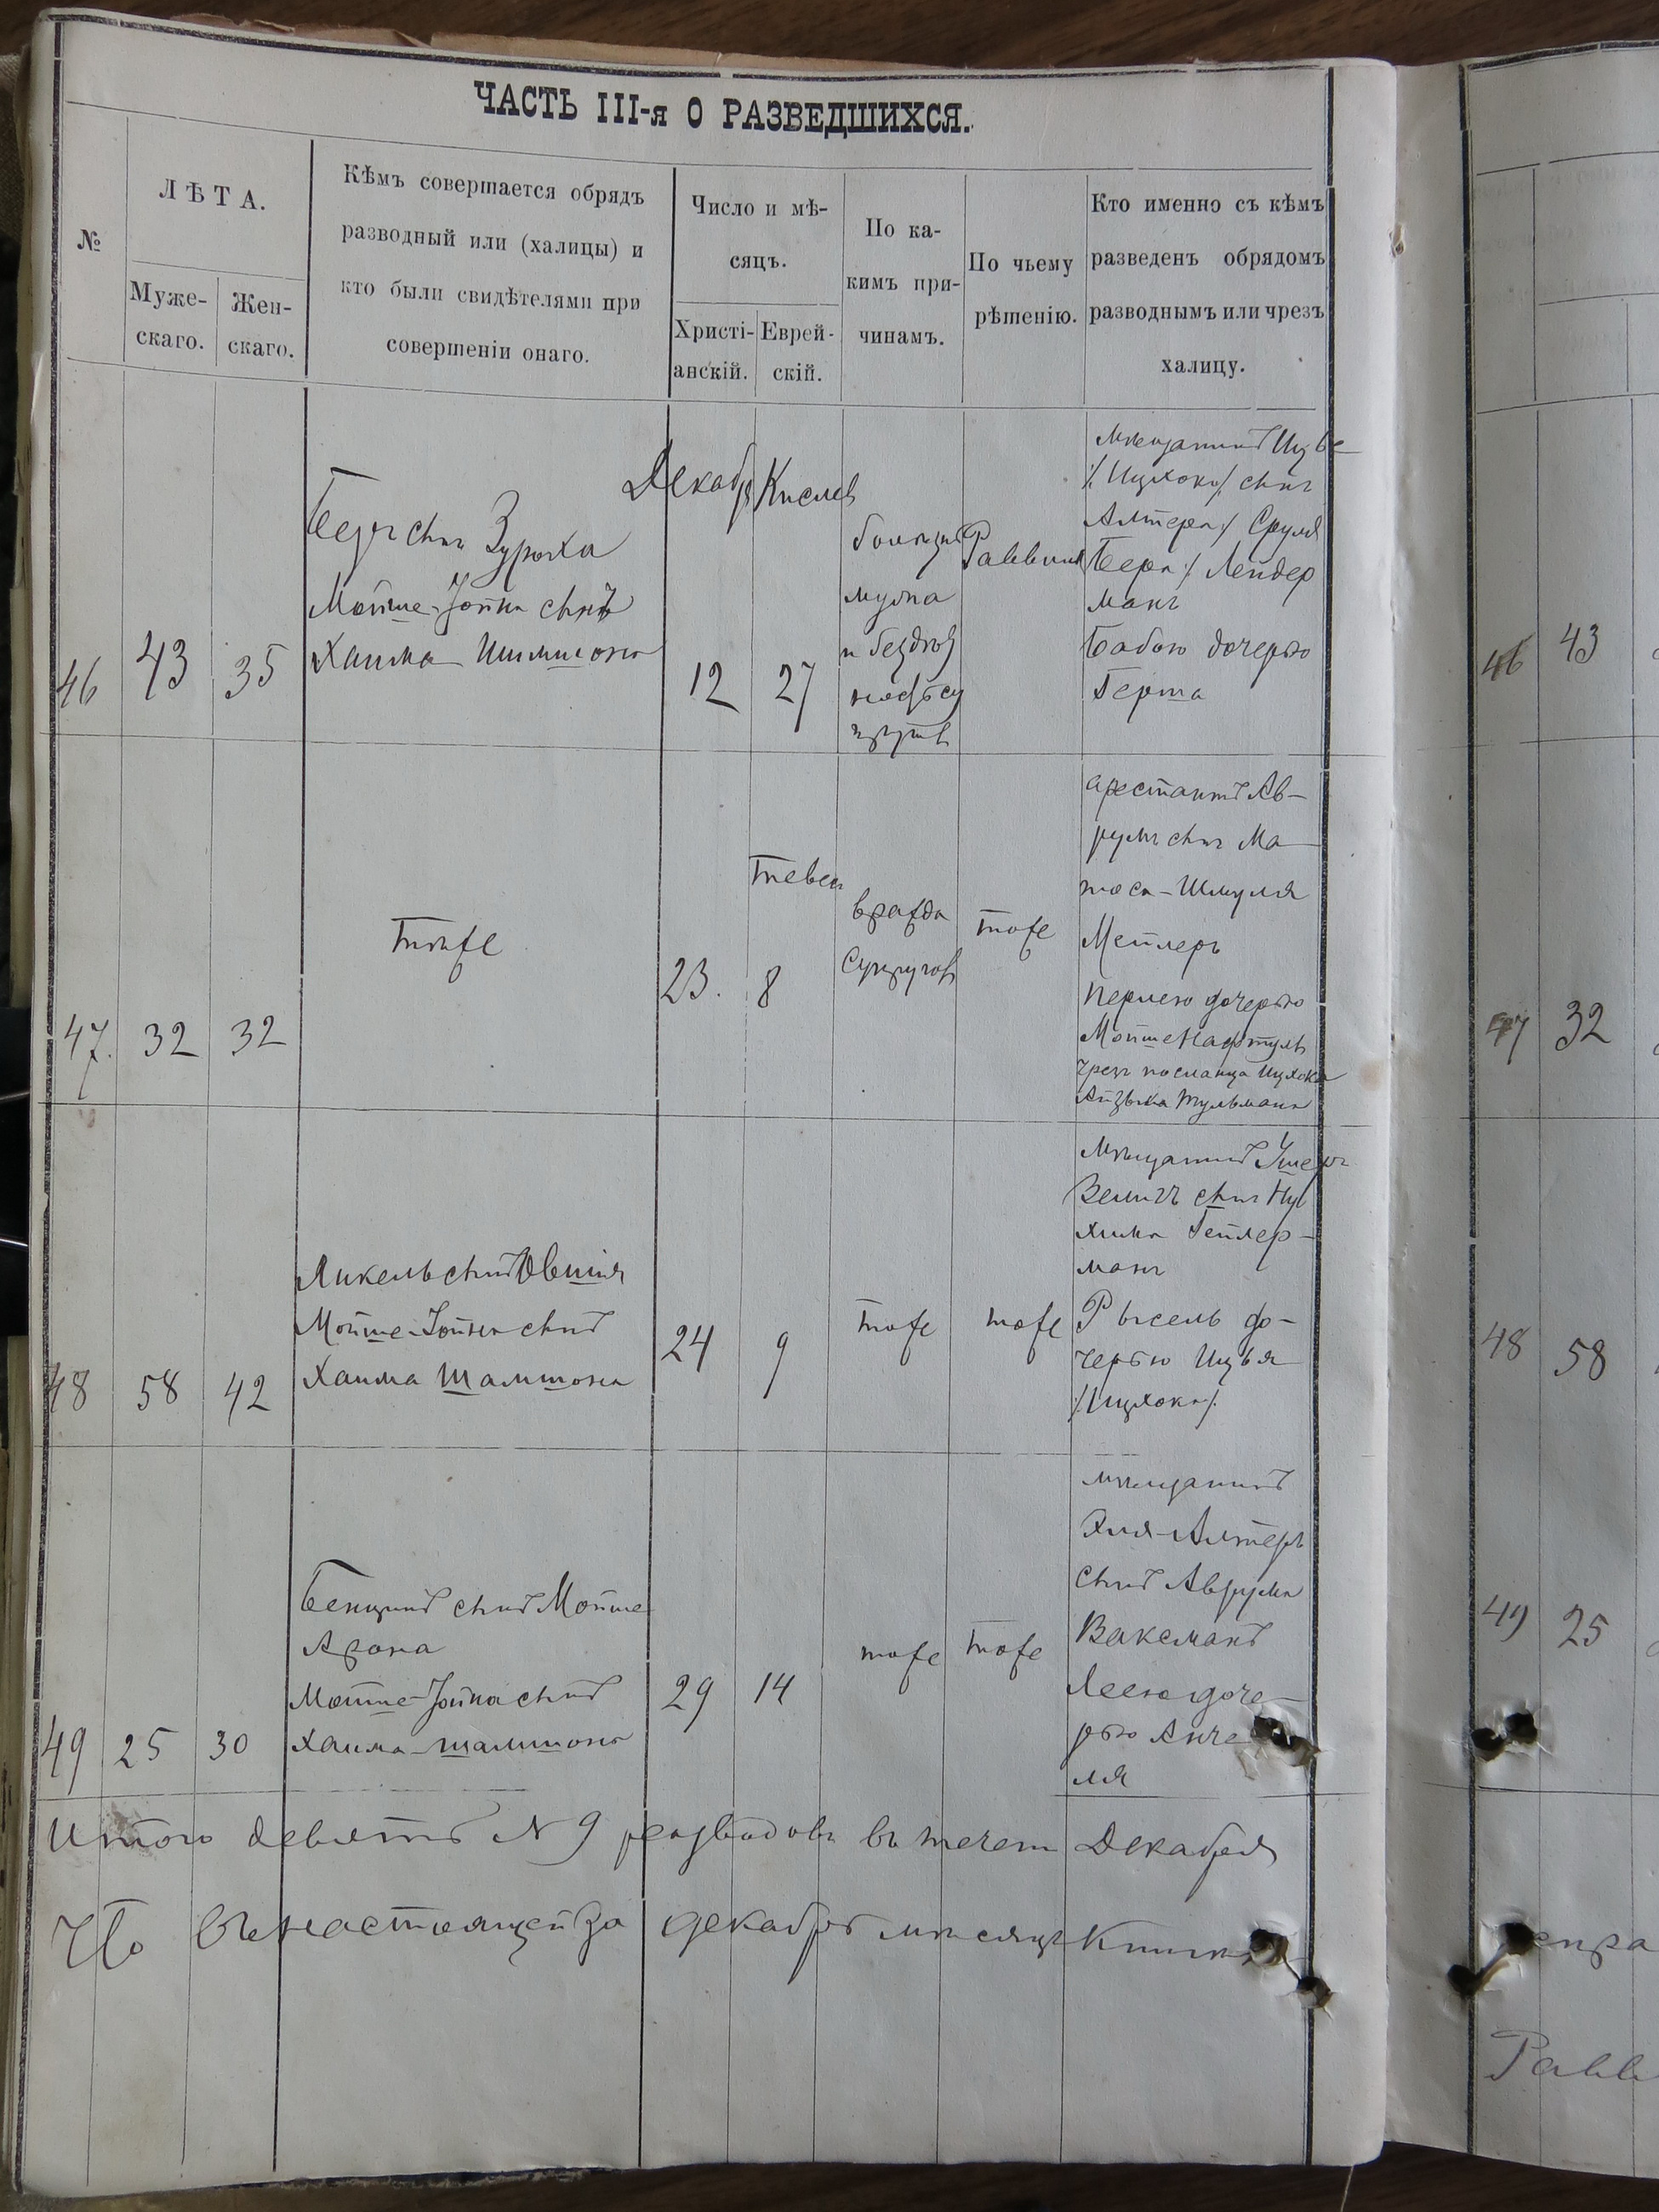 ЧАСТЬ III-я О РАЗВЕДШИХСЯ.
№
ЛѢТА.
Муже-
скаго.
Жен-
скаго.
Кѣмъ совершается обрядъ
разводный или (халицы) и
кто были свидѣтелями при
совершеніи онаго.
Число и мѣ-
сяцъ.
Христі-
анскій.
Еврей-
скій.
По ка-
кимъ при-
чинамъ.
По чьему
рѣшенію.
Кто именно съ кѣмъ
разведенъ обрядомъ
разводнымъ или чрезъ
халицу.
46
43
35
сынъ Зурыха
Мойше-Іойна сынъ
Хаима Шимшона
Декабр
12
Кислев
27
мужа
и
Раввина
мѣщанинъ Ицъе
/:Ицхокъ/ сынъ
Алтера:/ Сруля
Бера:/ Лейдер
манъ
Бабою дочерью
Герша
47.
32
32
тоже
23.
Тевес
8
вражда
супруговъ
тоже
арестантъ Ав-
румъ сынъ Ма
теса-Шмуля
Мейлеръ
Перлею дочерью
Мойше Нафтулъ
чрезъ посланца Ицхока
Айзыка Тульмана
48
58
42
Янкель сынъ Овшія
Мойше-Іойна сынъ
Хаима Шамшона
24
9
тоже
тоже
мѣщанинъ Ушеръ
Зелигъ сынъ Ну
хима Гейлер-
манъ
Рысель до-
черью Ицъя
/:Ицхока/:
49
25
30
Бенціонъ сынъ Мойше
Арона
Мойше-Іойна сынъ
Хаима-Шамшона
29
14
тоже
тоже
мѣщанинъ
Хия-Алтеръ
сынъ Аврума
Ваксманъ
Леею доче-
рью Анче
ля
Итого девять N 9 разводовъ въ течен Декабря
Что въ настоящей за декабрь мѣсяцъ книгѣ
46
43
47
32
48
58
49
25
спра
Равв